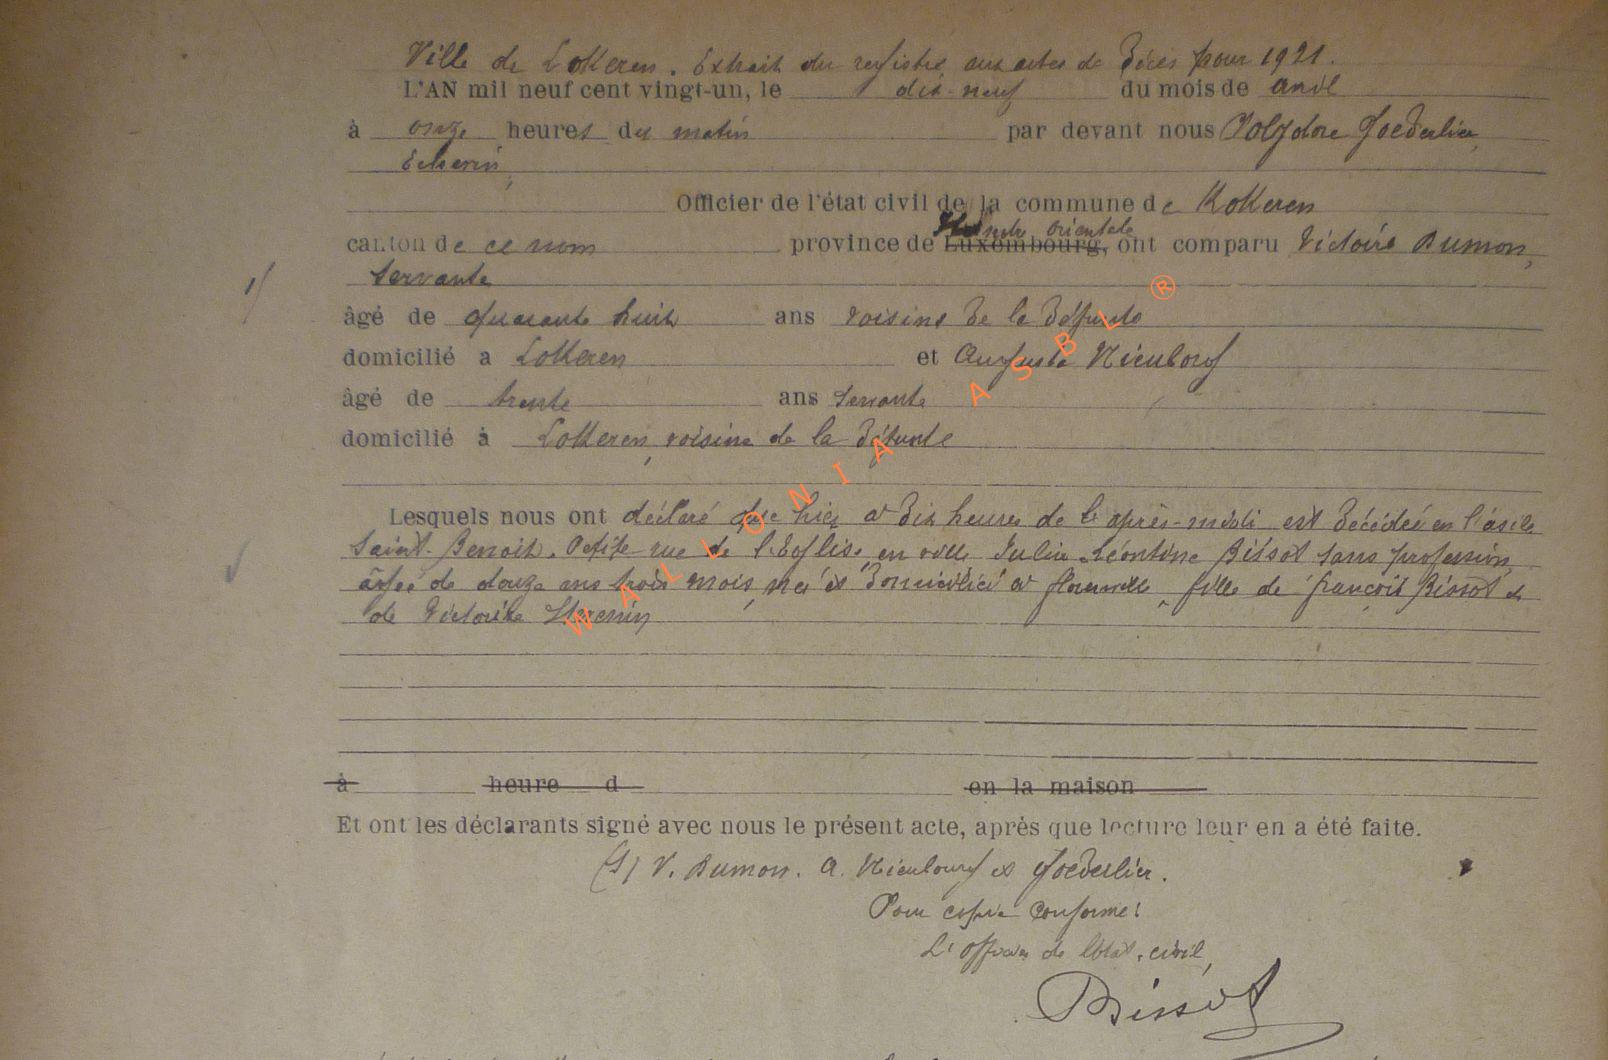 Ville de Lokeren. Extrait du registre aux actes de Décès pour 1921.
L'AN mil neuf cent vingt-un, le dix-neuf du mois de avril
à onze heures du matin par devant nous Polydore Goederlier,
Echevin,
Officier de l'état civil de la commune de Lokeren
Flandre orientale
canton de ce nom province de Luxembourg, ont comparu Victoire Dumon,
servante
âgé de quarante huit ans voisine de la défunte
domicilié a Lokeren et Auguste
âgé de trente ans servante
domicilié à Lokeren, voisine de la défunte
Lesquels nous ont déclaré que hier à dix heures de l'après-midi est décédée en l'asile
Saint-Benoit, Petite rue de l'Eglise, en ville Julia Léontine Bissot sans profession,
âgée de douze ans trois mois, née et domiciliée à florenville, fille de françois Bissot et
de Victorine
à heure d en la maison
Et ont les déclarants signé avec nous le présent acte, après que lecture leur en a été faite.
(S) V. Dumon. A. et Goederlier.
Pour copie conforme:
L'officier de l'état civil,
Bissot
WALLONIA ASBL ®